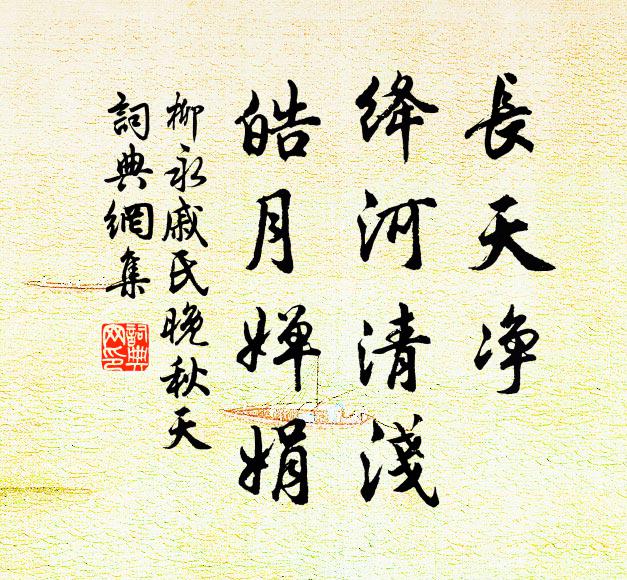 長天净
絳河清淺
皓月嬋娟
柳永戚氏晚秋天
詞典網集
詞典
网印